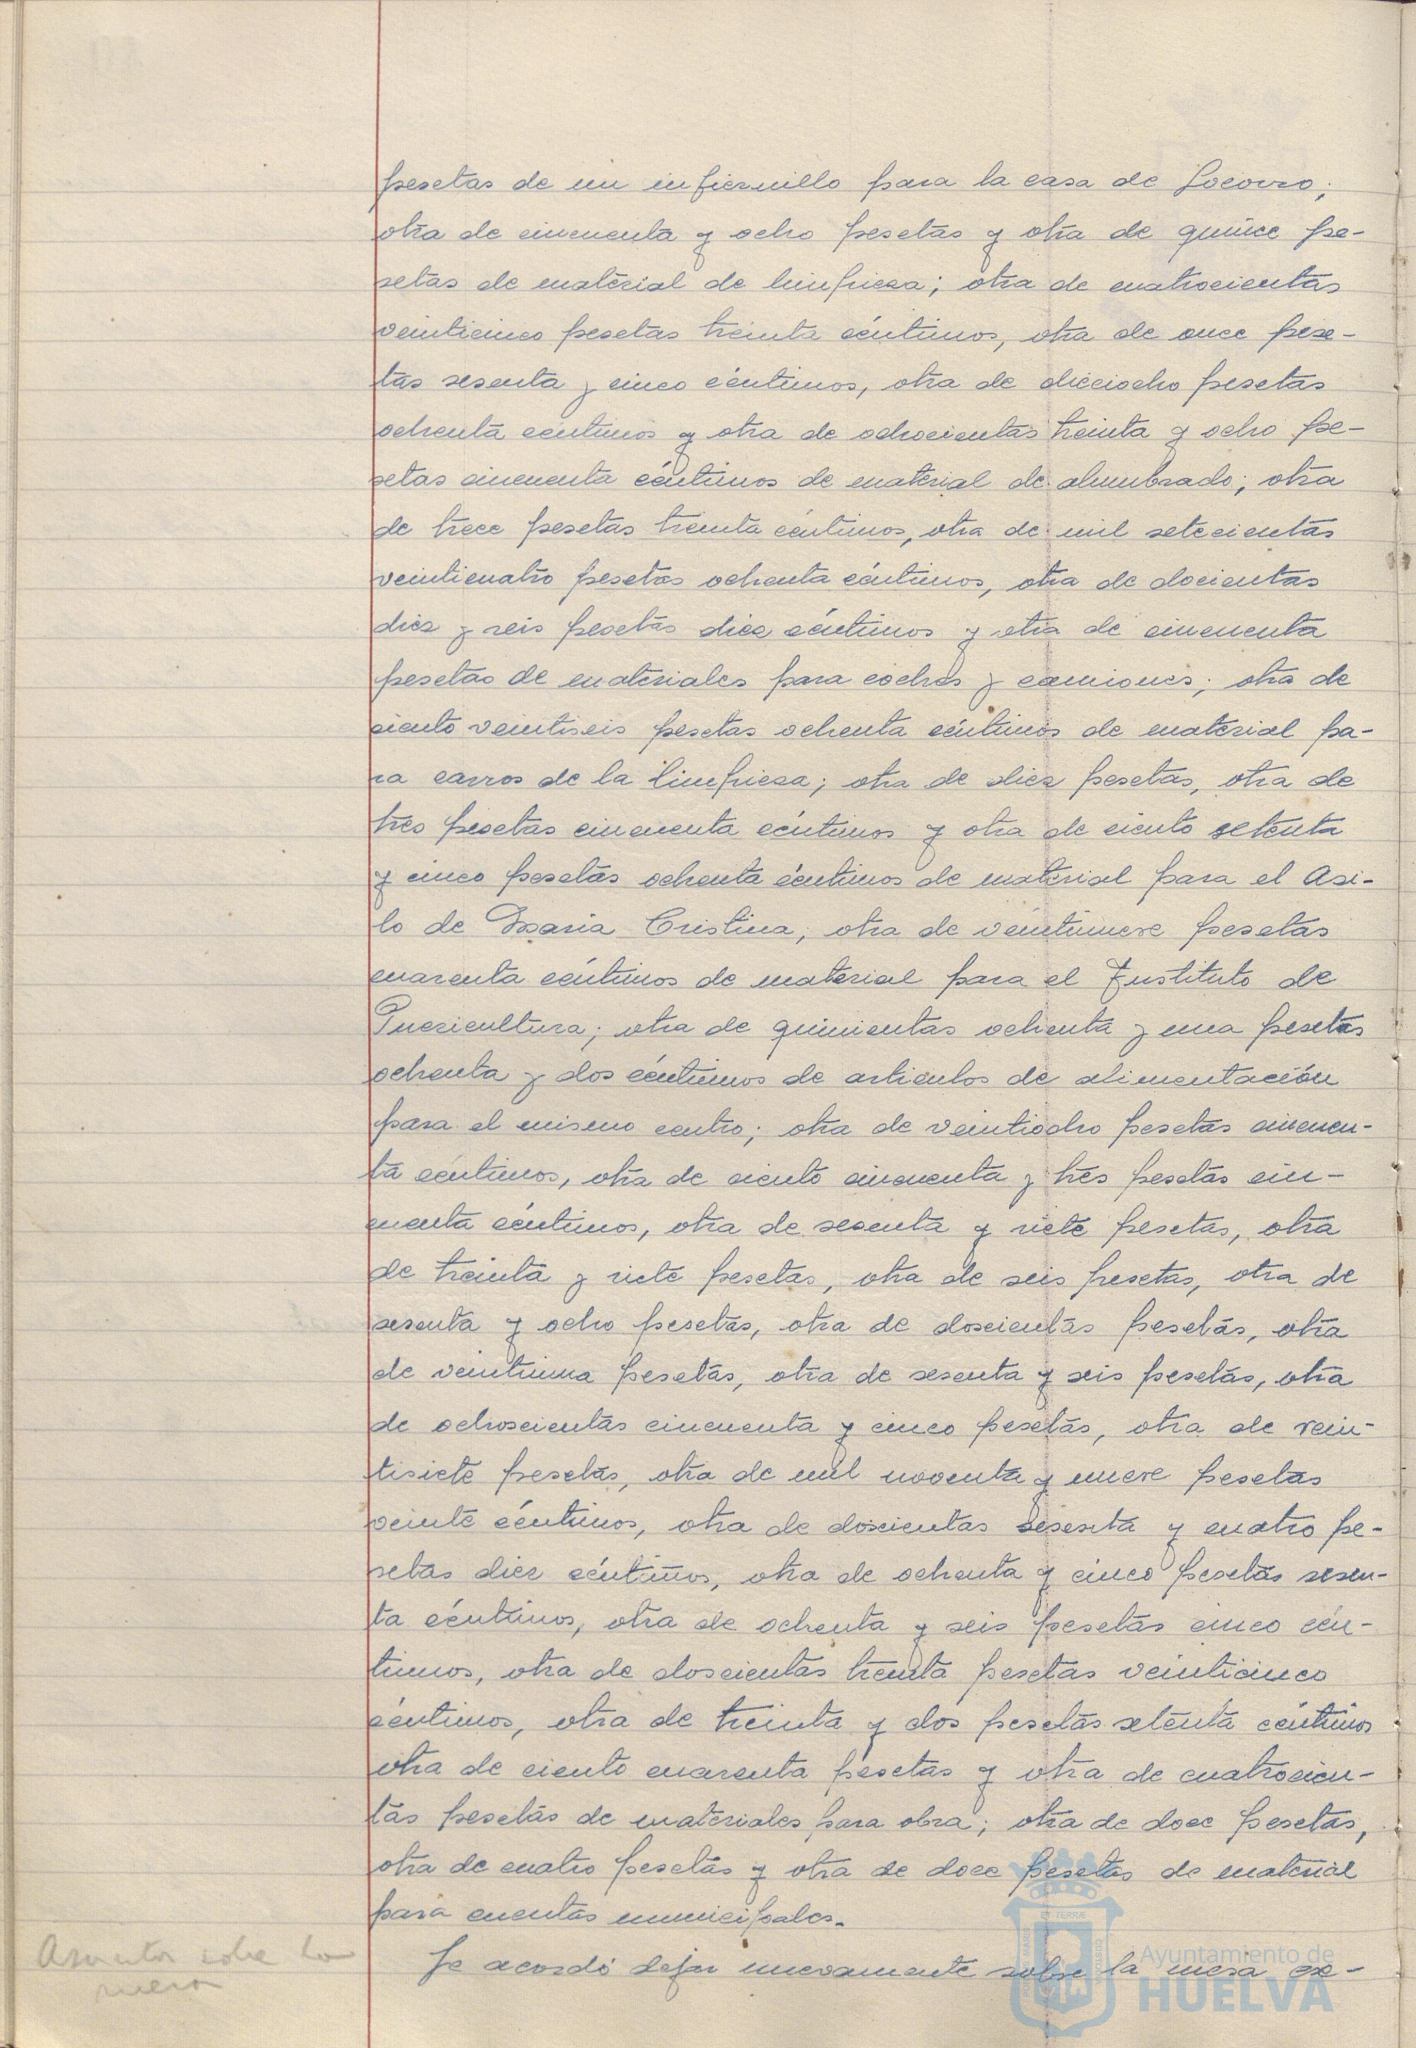 pesetas de un infiernillo para la casa de Socorro;
otra de cincuenta y ocho pesetas y otra de quince pe-
setas de material de limpieza; otra de cuatrocientas
veinticinco pesetas treinta céntimos, otra de once pese-
tas sesenta y cinco céntimos, otra de dieciocho pesetas
ochenta céntimos y otra de ochocientas treinta y ocho pe-
setas cincuenta céntimos de material de alumbrado; otra
de trece pesetas treinta céntimos, otra de mil setecientas
veinticuatro pesetas ochenta céntimos, otra de docientas
diez y seis pesetas diez céntimos y otra de cincuenta
pesetas de materiales para coches y camiones; otra de
ciento veintiseis pesetas ochenta céntimos de material pa-
ra carros de la limpieza; otra de diez pesetas, otra de
tres pesetas cincuenta céntimos y otra de ciento setenta
y cinco pesetas ochenta céntimos de material para el Asi-
lo de Maria Cristina; otra de veintinueve pesetas
cuarenta céntimos de material para el Instituto de
Puericultura; otra de quinientas ochenta y una pesetas
ochenta y dos céntimos de articulos de alimentación
para el mismo centro; otra de veintiocho pesetas cincuen-
ta céntimos, otra de ciento cincuenta y tres pesetas cin-
cuenta céntimos, otra de sesenta y siete pesetas, otra
de treinta y siete pesetas, otra de seis pesetas, otra de
sesenta y ocho pesetas, otra de doscientas pesetas, otra
de veintiuna pesetas, otra de sesenta y seis pesetas, otra
de ochoscientas cincuenta y cinco pesetas, otra de vein-
tisiete pesetas, otra de mil noventa y nueve pesetas
veinte céntimos, otra de doscientas sesenta y cuatro pe-
setas diez céntimos, otra de ochenta y cinco pesetas sesen-
ta céntimos, otra de ochenta y seis pesetas cinco cén-
timos, otra de doscientas treinta pesetas veinticinco
céntimos, otra de treinta y dos pesetas setenta céntimos
otra de ciento cuarenta pesetas y otra de cuatrocien-
tas pesetas de materiales para obra; otra de doce pesetas,
otra de cuatro pesetas y otra de doce pesetas de material
para cuentas municipales.
Asuntos sobre la
mesa
Se acordó dejar nuevamente sobre la mesa ex-
Ayuntamiento de
HUELVA